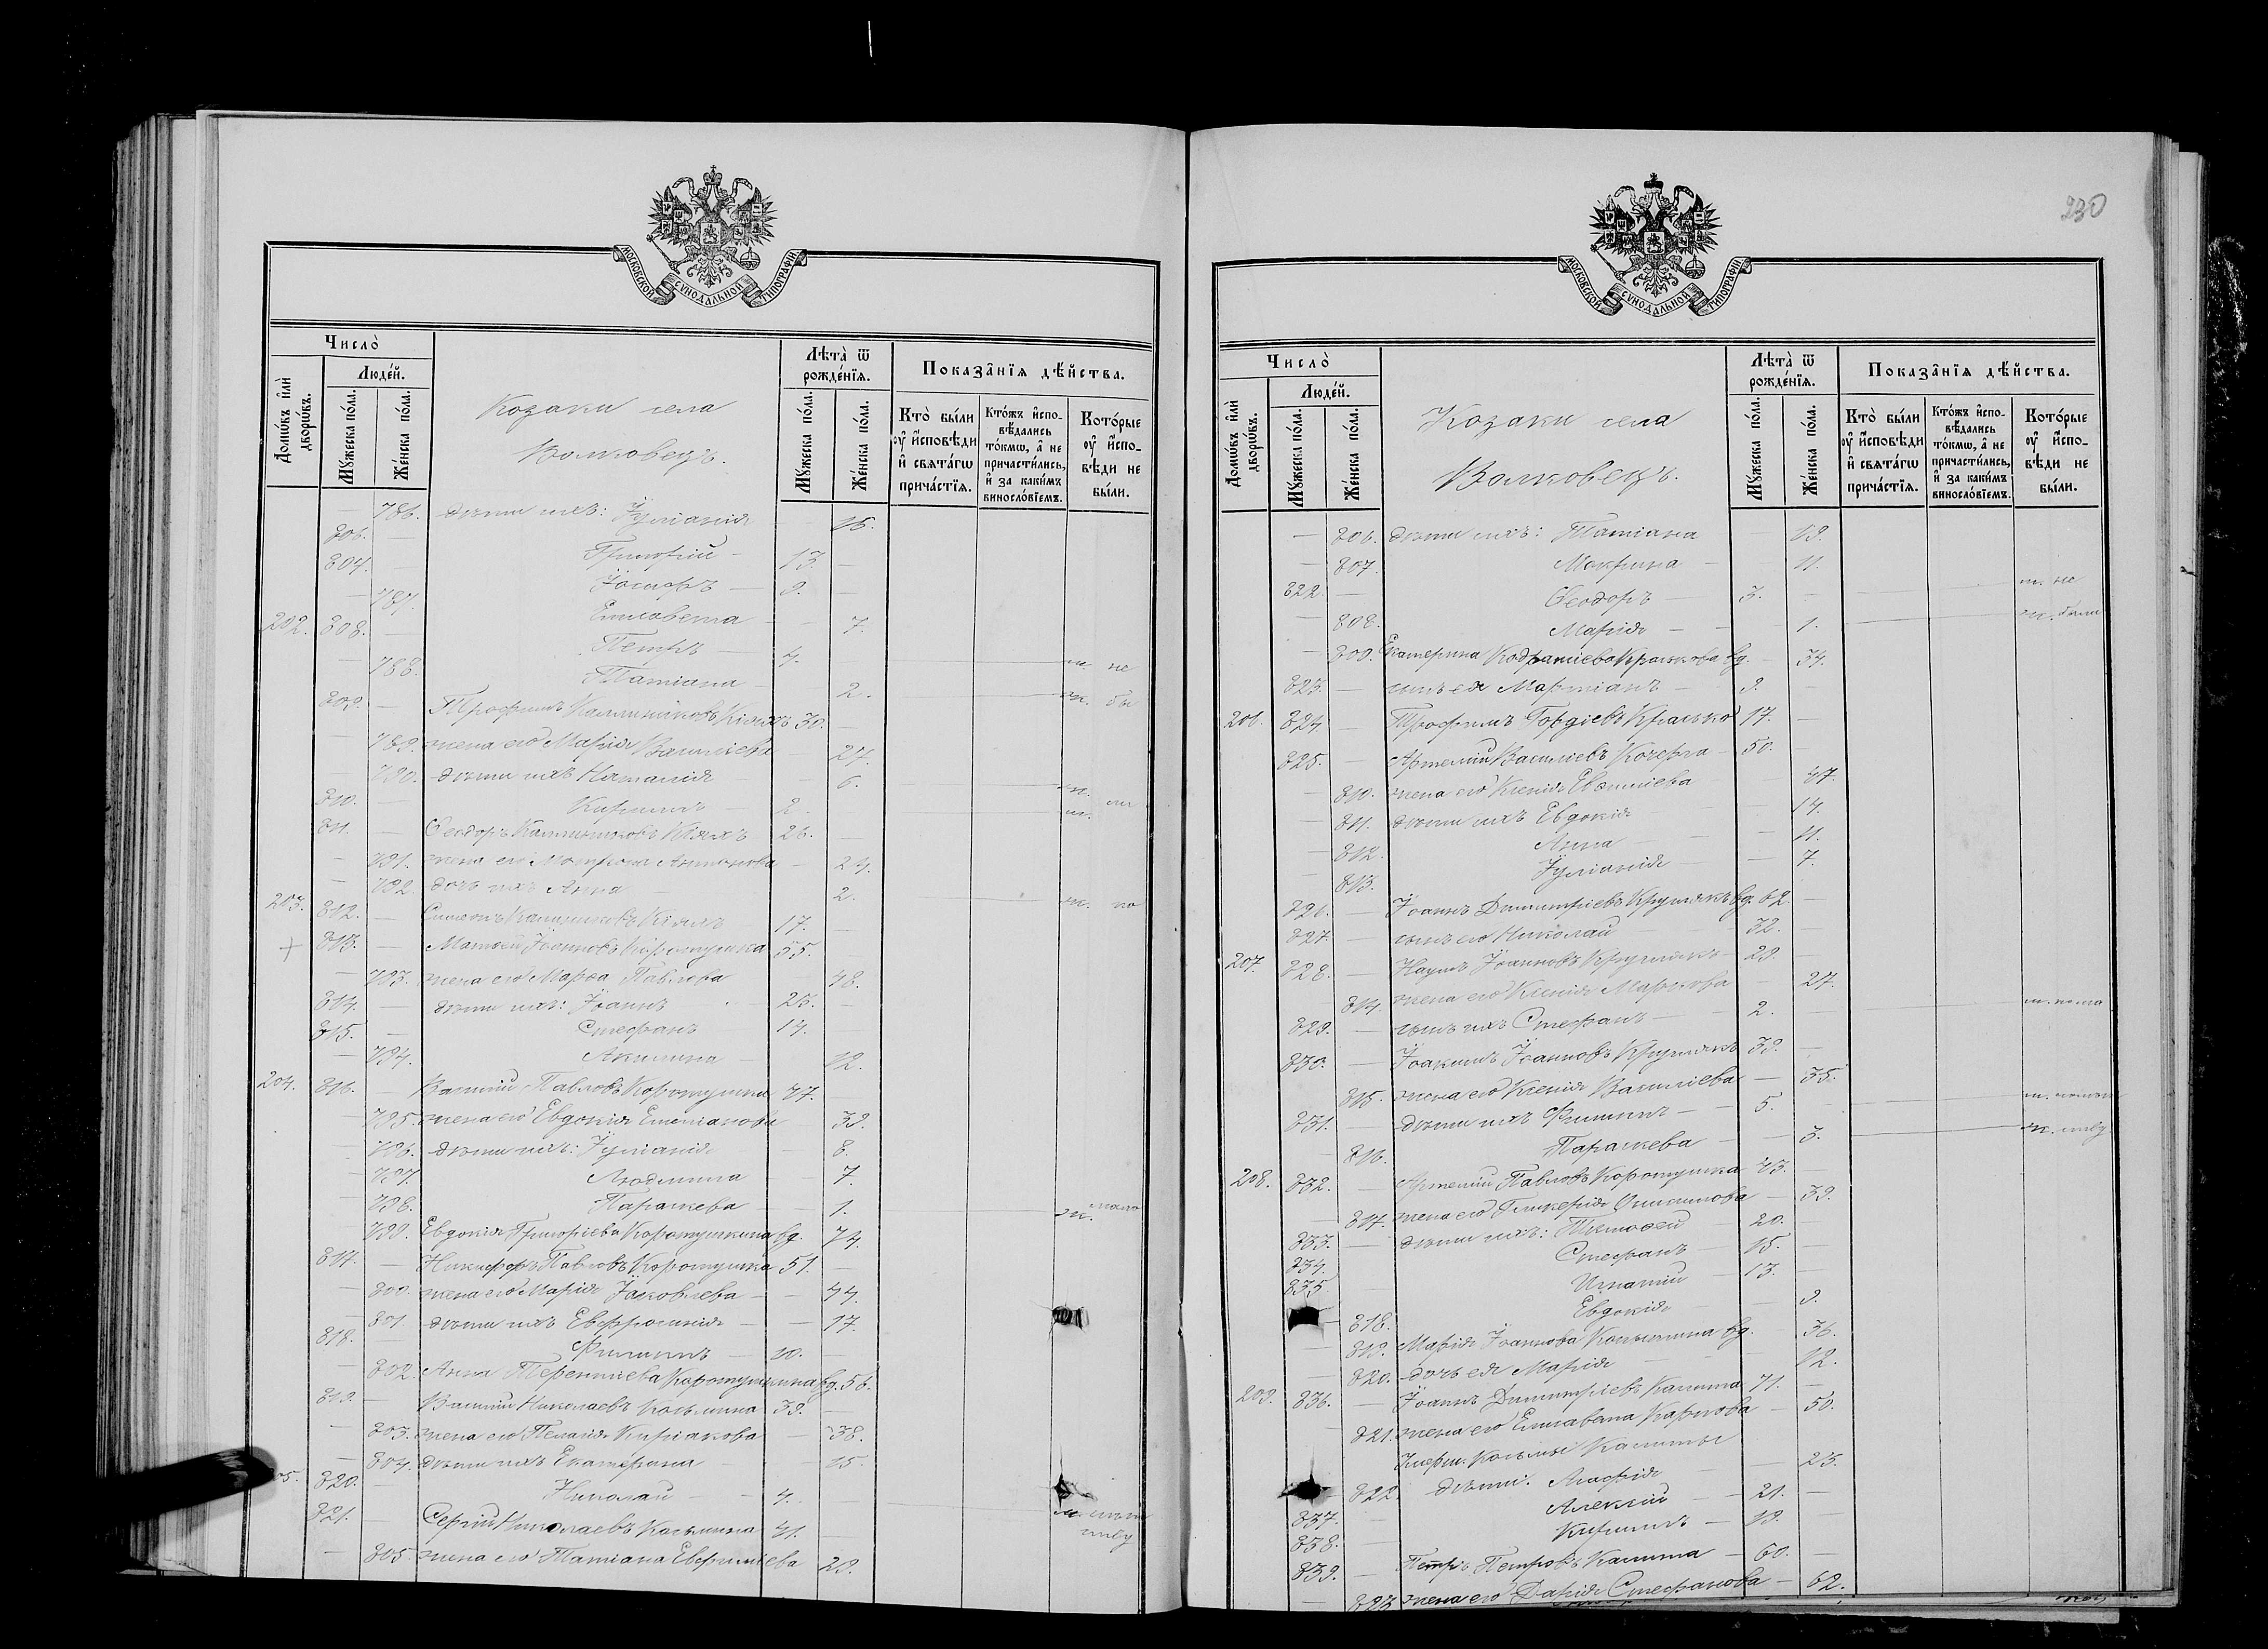 МОСКОВСКОЙ СѴНОДАЛЬНОЙ ТИПОГРАФІИ
Число̀
Людéй.
Домѡ́въ и҆лѝ дворѡ́въ.
Мꙋ́жеска по́ла.
Же́нска по́ла.
Козаки села
Волковецъ.
Лѣта̀ ѿ рожде́нїѧ.
Мꙋ́жеска по́ла.
Же́нска по́ла.
Показа̂нїѧ дѣ́йства.
Кто̀ бы́ли оу҆ и҆́сповѣди и҆ свѧта́гѡ прича́стїѧ.
Кто́жъ и҆спо-вѣ́дались то́кмѡ, а҆ не причасти́лись, и҆ за каки́мъ винослόвїемъ.
Кото́рые оу҆ и҆спо-вѣди не бы́ли.
786. дѣти ихъ: Іуліанія 16.
806. Григорій 13
807. Іосифъ 9.
787. Елисавета 7.
202. 808. Петръ 4. м. не
788. Татіана 2. ж. бы
809. Трофимъ Каллиниковъ 30.
789. жена его Марія Василіева 27.
790. дѣти ихъ Наталія 6. ж.
810. Кириллъ 2. м.
811. Ѳеодоръ Каллиниковъ 26.
791. жена его Матрона Антонова 24.
792. дочь ихъ Анна 2. ж. по
203. 812. Симеонъ Каллиниковъ 17.
813. Матѳей Іоанновъ Коротушка 55.
793. жена его Марѳа Павлова 48.
814. дѣти ихъ: Іоаннъ 23.
815. Стефанъ 14.
794. Акилина 12.
204. 816. Василій Павловъ Коротушка 47.
795. жена его Евдокія Емеліанова 39.
796. дѣти ихъ: Іуліанія 8.
797. Людмила 7.
798. Параскева 1. ж. мало
799. Евдокія Григоріева Коротушкина вд. 74.
817. Никифоръ Павловъ Коротушка 51.
800. жена его Марія Іаковлева 44.
801. дѣти ихъ Евфросинія 17.
818. Филиппъ 10.
802. Анна Терентіева Коротушкина вд. 56.
819. Василій Николаевъ Косьмина 39.
803. жена его Пелагія Киріакова 38.
804. дѣти ихъ Екатерина 15.
05. 820. Николай 4.
821. Сергій Николаевъ Косьмина 41.
805. жена его Татіана Евфиміева 29.
230
МОСКОВСКОЙ СѴНОДАЛЬНОЙ ТИПОГРАФІИ
Число̀
Людéй.
Домѡ́въ и҆лѝ дворѡ́въ.
Мꙋ́жеска по́ла.
Же́нска по́ла.
Козаки села
Волковецъ.
Лѣта̀ ѿ рожде́нїѧ.
Мꙋ́жеска по́ла.
Же́нска по́ла.
Показа̂нїѧ дѣ́йства.
Кто̀ бы́ли оу҆ и҆́сповѣди и҆ свѧта́гѡ прича́стїѧ.
Кто́жъ и҆спо-вѣ́дались то́кмѡ, а҆ не причасти́лись, и҆ за каки́мъ винослόвїемъ.
Кото́рые оу҆ и҆спо-вѣди не бы́ли.
806. дѣти ихъ: Татіана 19.
807. Мокрина 11.
822. Ѳеодоръ 3. м. не
808. Марія 1. ж. были
809. Екатерина Кодратіева Краськова вд. 34.
823. сынъ ея Мартіанъ 9.
206. 824. Трофимъ Гордіевъ Красько 17.
825. Артемій Василіевъ Кочерга 50.
810. жена его Ксенія Евѳиміева 47.
811. дѣти ихъ Евдокія 14.
812. Анна 11.
813. Іуліанія 7.
826. Іоаннъ Димитріевъ Круглякъ вд. 62.
827. сынъ его Николай 32.
207. 828. Наумъ Іоанновъ Круглякъ 29.
814. жена его Ксенія Маркова 27.
829. сынъ ихъ Стефанъ 2.
830. Іоакимъ Іоанновъ Круглякъ 39.
815. жена его Ксенія Василіева 35.
831. дѣти ихъ Филиппъ 5.
816. Параскева 3.
208. 832. Артемій Павловъ Коротушка 43.
817. жена его Гликерія 39.
833. дѣти ихъ: Тимоѳей 20.
834. Стефанъ 15.
835 Игнатій 13.
818. Евдокія 9.
819. Марія Іоаннова вд. 36.
820. дочь ея Марія 12.
209. 836. Іоаннъ Димитріевъ Калита 71.
821. жена его Елисавета Карпова 50.
Косьмы Калиты
822 дѣти: Агафія 23.
837. Алексій 21.
838. Кириллъ 19.
839. Петръ Петровъ Калита 60.
823 жена его Дарія Стефанова 62.